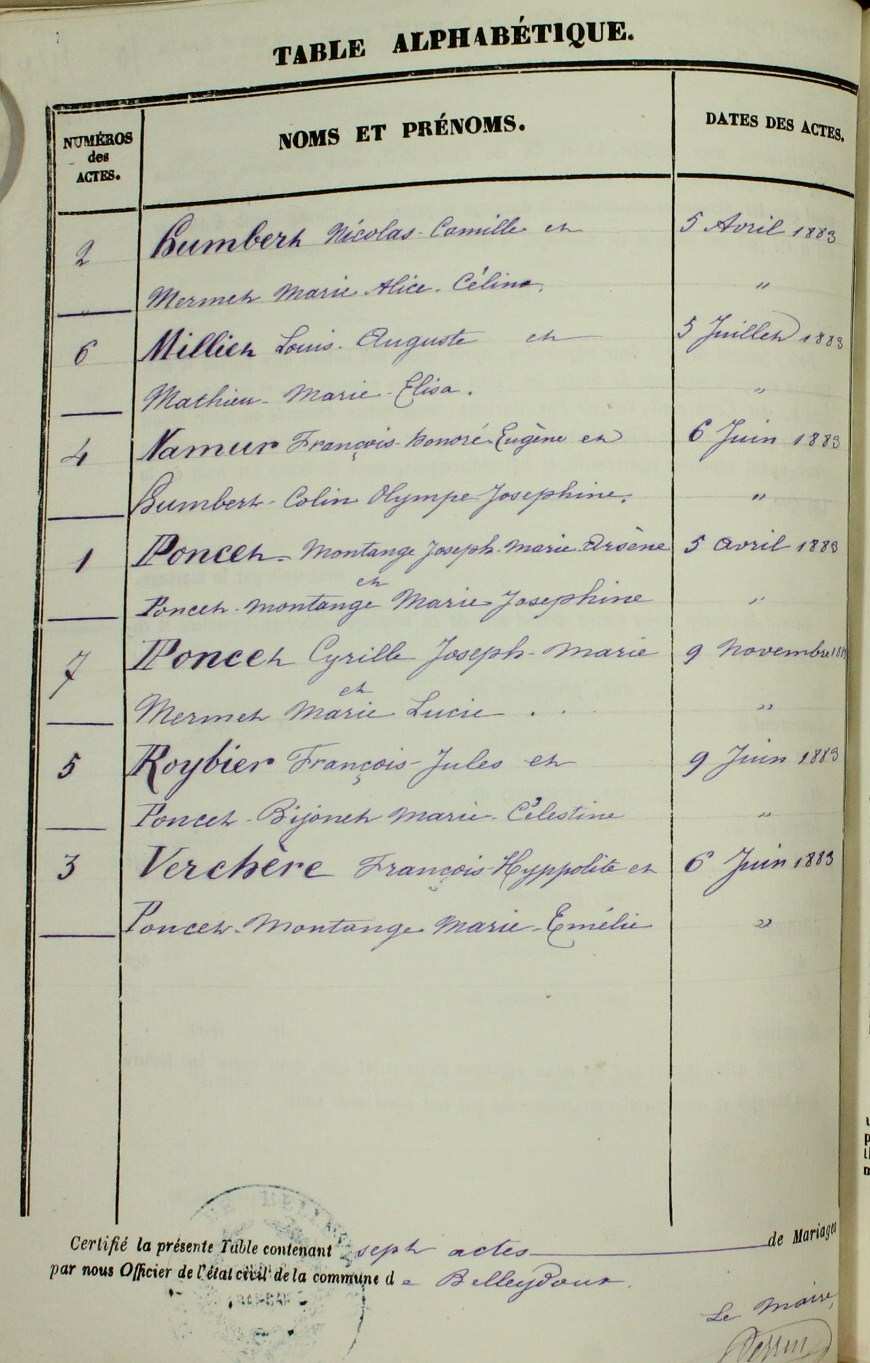 TABLE ALPHABÉTIQUE.
NUMÉROS des ACTES. NOMS ET PRÉNOMS. DATES DES ACTES.
2 Humbert Nicolas-Camille et 5 Avril 1883
" Mermet Marie-Alice-Célina. "
6 Milliet Louis-Auguste et 5 Juillet 1883
Mathieu-Marie-Elisa. "
4 Namur François-honoré-Eugène et 6 Juin 1883
Humbert-Colin Olympe-Josephine. "
1 Poncet-Montange Joseph-Marie Arsène 5 avril 1883
et
Poncet-montange Marie Josephine "
7 Poncet Cyrille Joseph-Marie 9 Novembre
et
Mermet Marie Lucie . . . "
5 Roybier François-Jules et 9 Juin 1883
Poncet-Bijonet Marie-Célestine "
3 Verchère François-Hyppolite et 6 Juin 1883
Poncet-Montange Marie-Emélie "
Certifié la présente Table contenant sept actes de Mariages
par nous Officier de l'état civil de la commune de Belleydoux.
Le Maire,
Perrin